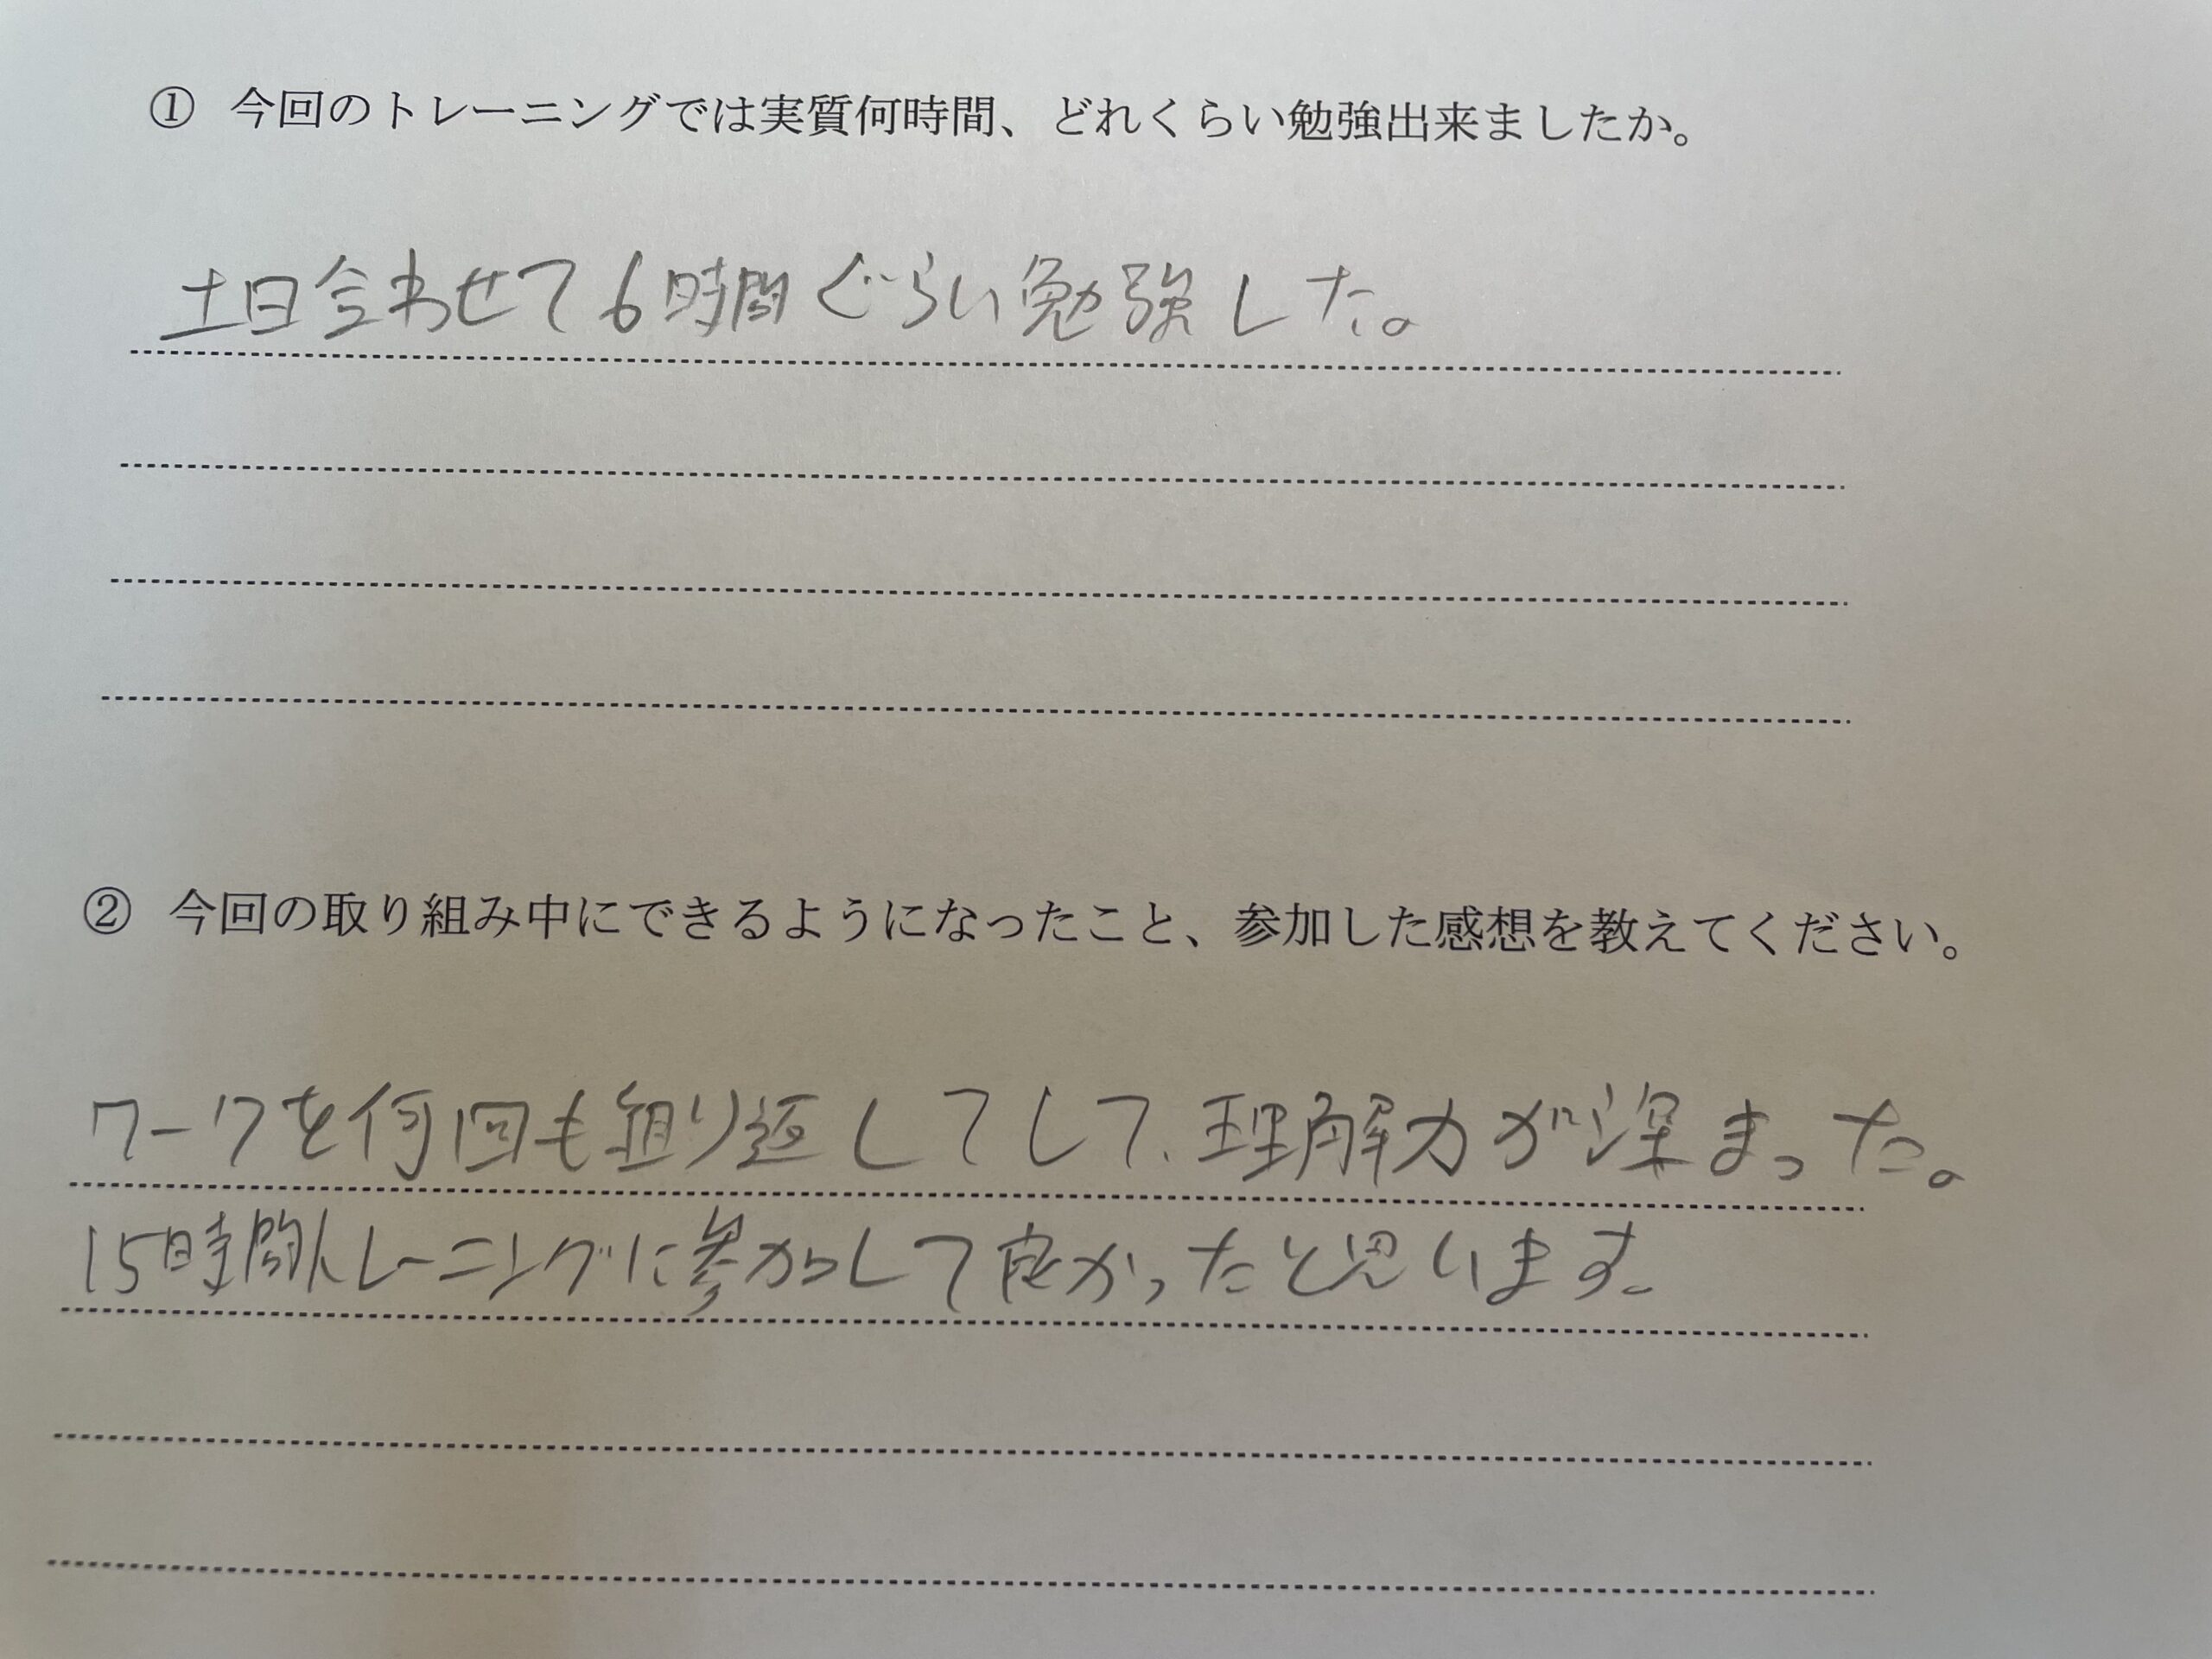 ① 今回のトレーニングでは実質何時間、どれくらい勉強出来ましたか。
土日合わせて6時間ぐらい勉強した。
② 今回の取り組み中にできるようになったこと、参加した感想を教えてください。
ワークを何回も組り返してして、理解力が深まった。
15時間トレーニングに参加して良かったと思います。